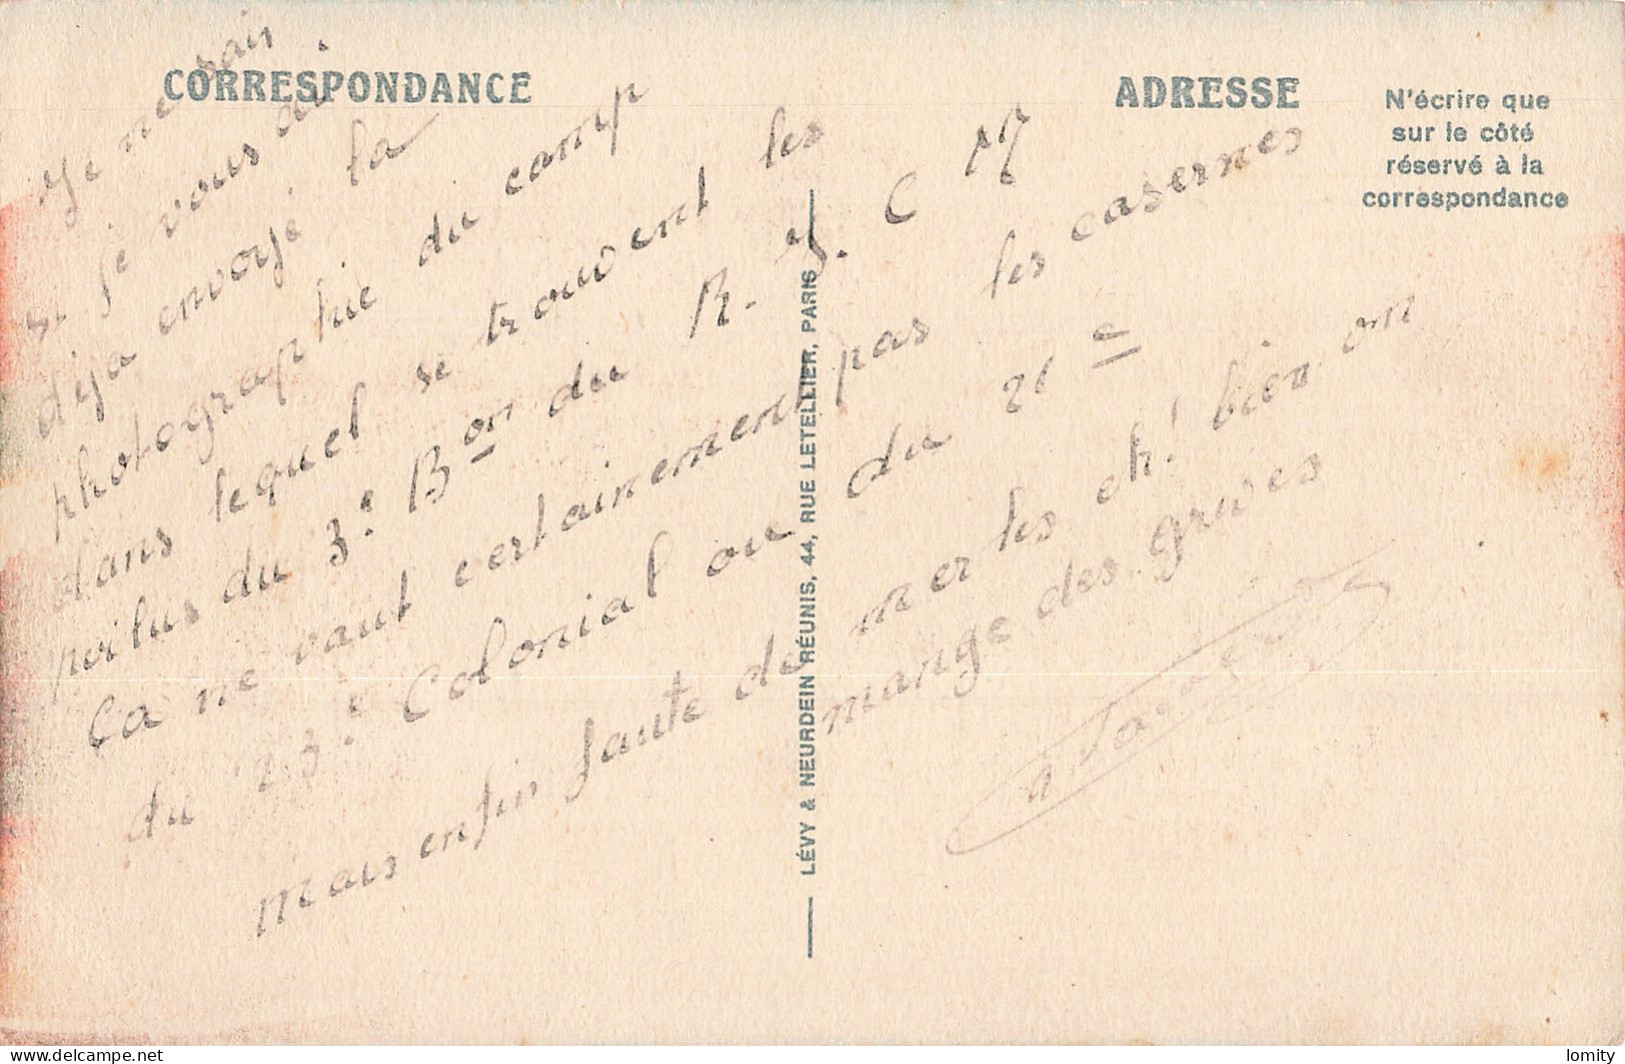 CORRESPONDANCE
ADRESSE
N'écrire que
sur le côté
réservé à la
correspondance
Je ne sais
si je vous ai
déja envoyé la
photographie du camp
dans lequel se trouvent les
poilus du 3e Bon du R. I. C M
Ça ne vaut certainement pas les casernes
du 23e Colonial ou du 21e
mais enfin faute de merles eh! bien on
mange des grives
LÉVY & NEURDEIN RÉUNIS, 44, RUE LETELLIER, PARIS
delcampe.net
lomity